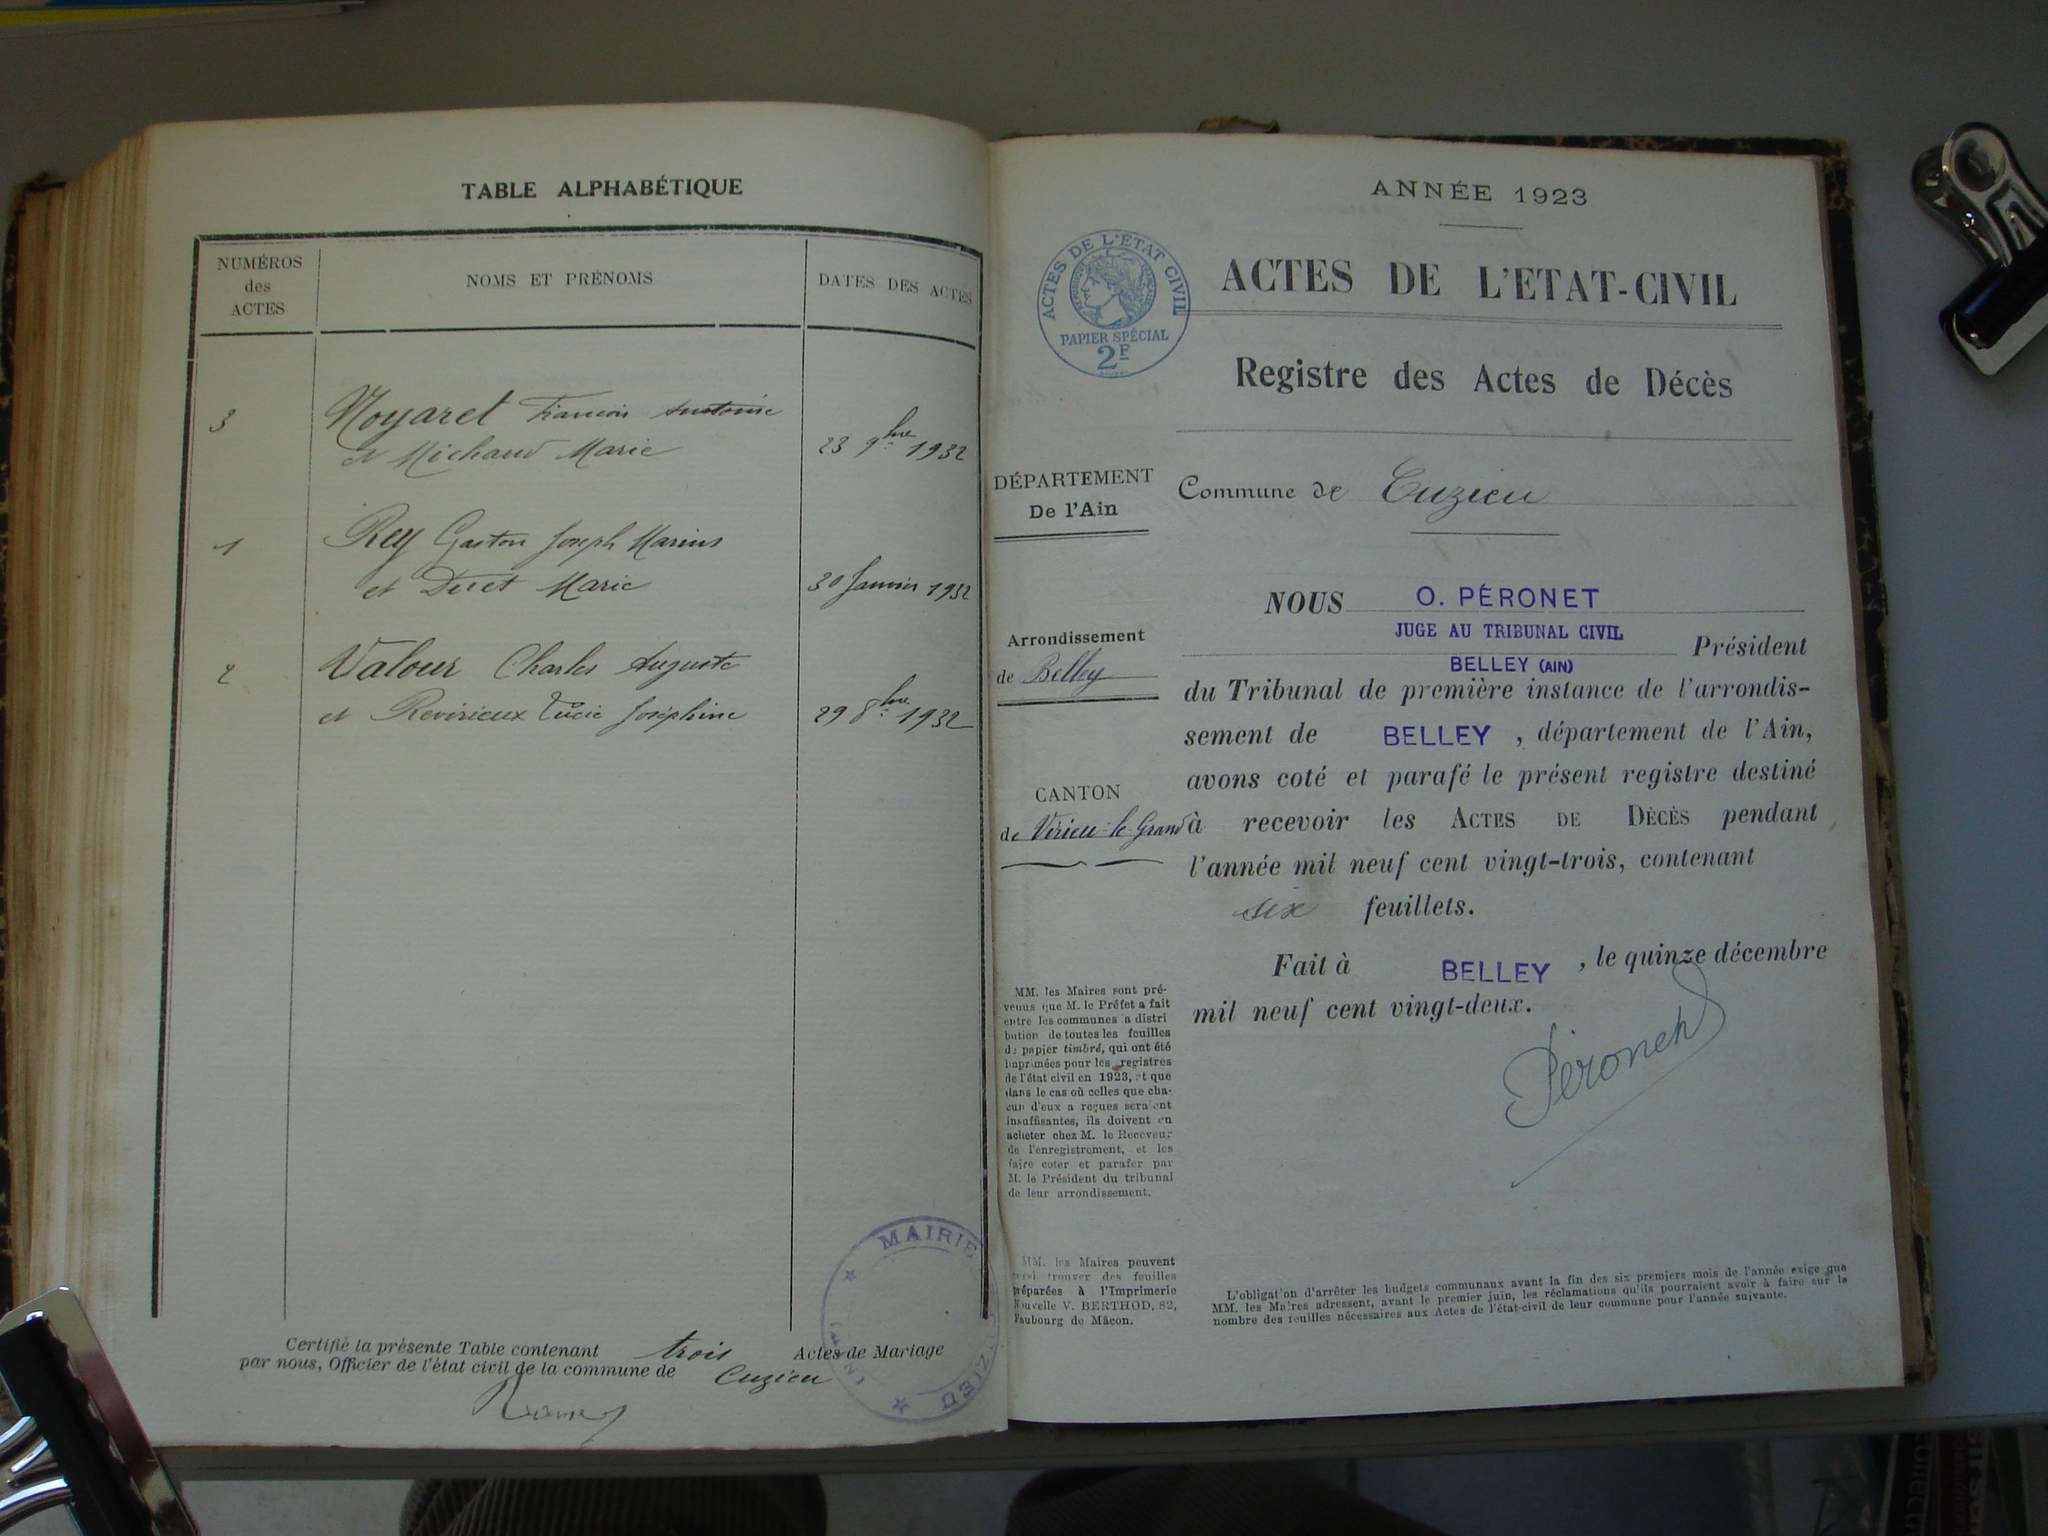 TABLE ALPHABÉTIQUE
NUMÉROS
des
ACTES
NOMS ET PRÉNOMS
DATES DES ACTES
3
Noyaret François Antoine
et Michaud Marie
23 9bre 1932
1
Rey Gaston Joseph Marius
et Ducet Marie
30 Janvier 1932
2
Valour Charles Auguste
et Revirieux Lucie Joséphine
29 8bre 1932
Certifié la présente Table contenant trois Actes de Mariage
par nous, Officier de l'état civil de la commune de Cuzieu
MAIRIE
ANNÉE 1923
ACTES DE L'ÉTAT CIVIL
RÉPUBLIQUE FRANÇAISE
PAPIER SPÉCIAL
2F
ACTES DE L'ETAT-CIVIL
Registre des Actes de Décès
DÉPARTEMENT
De l'Ain
Commune de Cuzieu
Arrondissement
de Belley
CANTON
de Virieu-le-Grand
NOUS O. PÉRONET
JUGE AU TRIBUNAL CIVIL
Président
BELLEY (AIN)
du Tribunal de première instance de l'arrondis-
sement de BELLEY, département de l'Ain,
avons coté et parafé le présent registre destiné
à recevoir les ACTES DE DÉCÈS pendant
l'année mil neuf cent vingt-trois, contenant
six feuillets.
Fait à BELLEY, le quinze décembre
mil neuf cent vingt-deux.
Péronet
MM. les Maires sont pré-
venus que M. le Préfet a fait
entre les communes a distri
bution de toutes les feuilles
du papier timbré, qui ont été
imprimées pour les registres
de l'état civil en 1923, et que
dans le cas où celles que cha-
cun d'eux a reçues seraient
insuffisantes, ils doivent en
acheter chez M. le Receveur
de l'enregistrement, et les
faire coter et parafer par
M. le Président du tribunal
de leur arrondissement.
MM. les Maires peuvent
trouver des feuilles
préparées à l'Imprimerie
Nouvelle V. BERTHOD, 82,
Faubourg de Mâcon.
L'obligation d'arrêter les budgets communaux avant la fin des six premiers mois de l'année exige que
MM. les Maires adressent, avant le premier juin, les réclamations qu'ils pourraient avoir à faire sur le
nombre des feuilles nécessaires aux Actes de l'état-civil de leur commune pour l'année suivante.